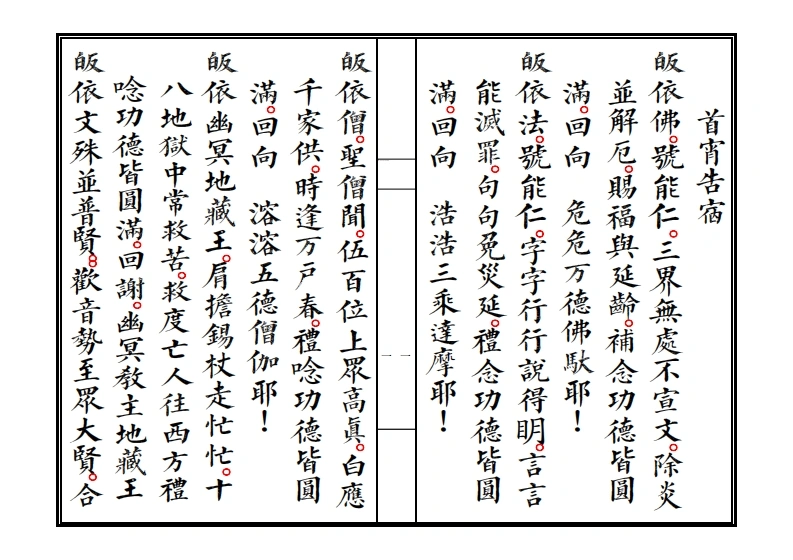 首宵告宿
皈依佛。號能仁。三界無處不宣文。除災
並解厄。賜福與延齡。補念功德皆圓
滿。回向　巍巍万德佛馱耶！
皈依法。號能仁。字字行行說得明。言言
能滅罪。句句免災延。禮念功德皆圓
滿。回向　浩浩三乘達摩耶！
一一
皈依僧。聖僧聞。伍百位上眾高眞。白應
千家供。時逢万戶春。禮唸功德皆圓
滿。回向　溶溶五德僧伽耶！
皈依幽冥地藏王。肩擔錫杖走忙忙。十
八地獄中常救苦。救度亡人往西方禮
唸功德皆圓滿。回謝。幽冥教主地藏王
皈依文殊並普賢。歡音勢至眾大賢。合